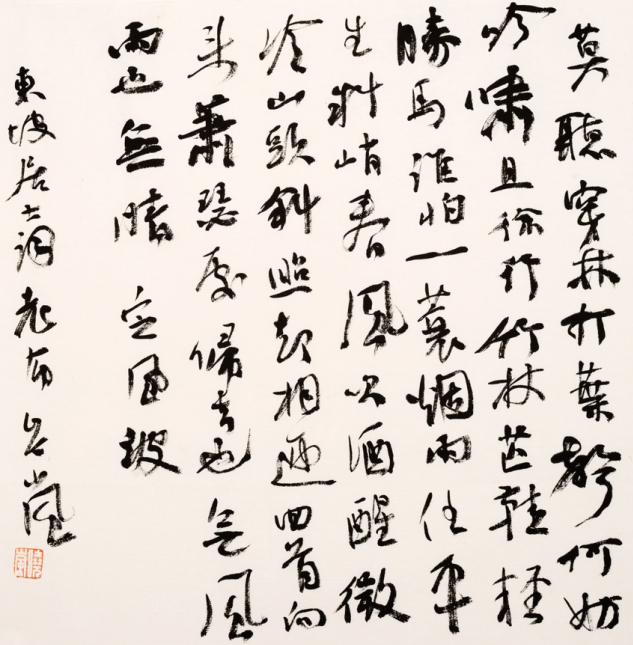 莫聽穿林打葉聲何妨
吟嘯且徐行竹杖芒鞋輕
勝馬誰怕一蓑烟雨任平
生料峭春風吹酒醒微
冷山頭斜照却相迎回首向
来蕭瑟處歸去也無風
雨也無晴 定風波
東坡居士詞